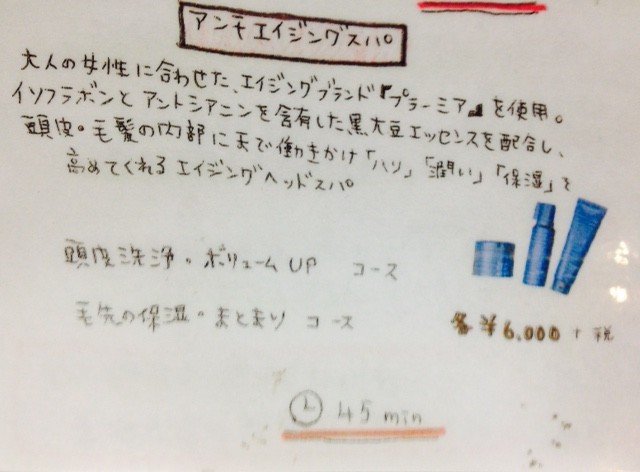 アンチエイジングスパ
大人の女性に合わせた、エイジングブランド『プラーミア』を使用。
イソフラボンとアントシアニンを含有した黒大豆エッセンスを配合し、
頭皮・毛髪の内部にまで働きかけ「ハリ」「潤い」「保湿」を
高めてくれるエイジングヘッドスパ。
頭皮洗浄・ボリュームUP コース
毛先の保湿・まとまり コース
各¥6,000+税
45min